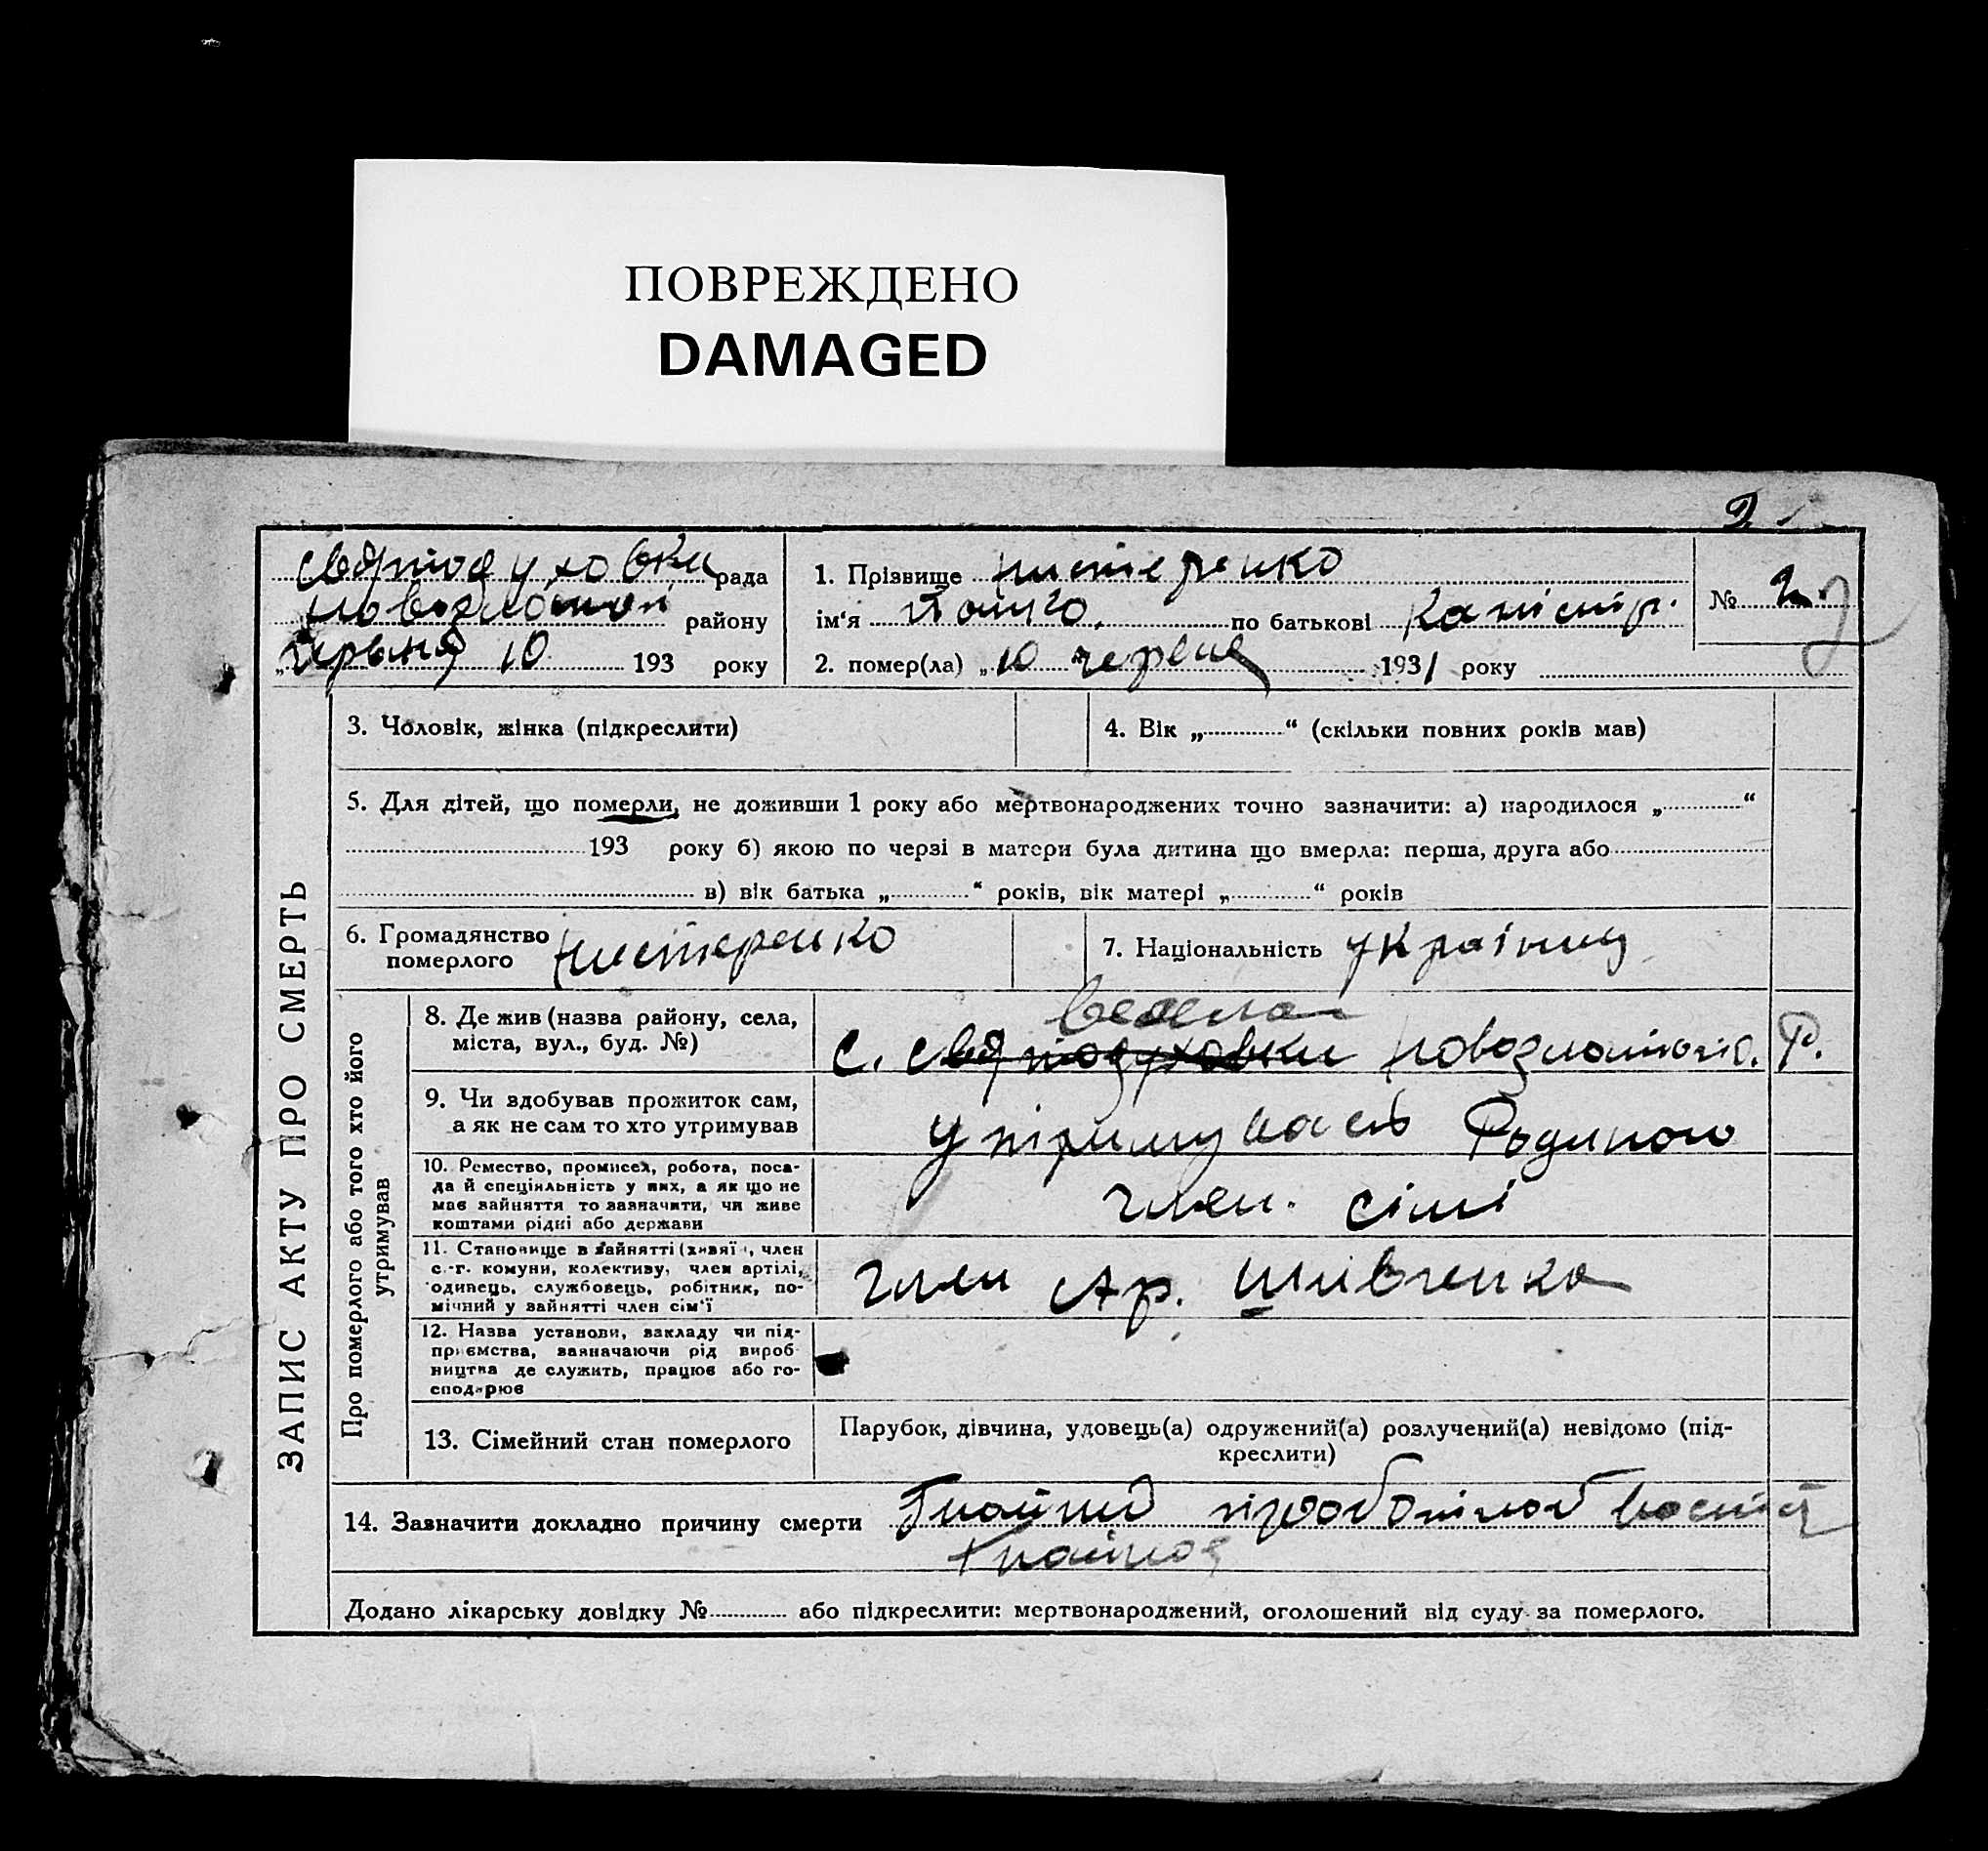 ПОВРЕЖДЕНО
DAMAGED
2
Святодуховки рада
району
Червня 10 193 року
1. Прізвище Нистеренко
ім'я по батькові
2. помер(ла) „10 червня 1931 року
№ 2
3. Чоловік, жінка (підкреслити)
4. Вік „ “ (скільки повних років мав)
5. Для дітей, що померли, не доживши 1 року або мертвонароджених точно зазначити: а) народилося „ “
193 року б) якою по черзі в матери була дитина що вмерла: перша, друга або
в) вік батька „ “ років, вік матері „ “ років
6. Громадянство
померлого Нистеренко
7. Національність
ЗАПИС АКТУ ПРО СМЕРТЬ
Про померлого або того хто його
утримував
8. Де жив (назва району, села,
міста, вул., буд. №)
с. Святодуховки Р.
9. Чи здобував прожиток сам,
а як не сам то хто утримував
Родиною
10. Ремество, промисел, робота, поса-
да й спеціяльність у них, а як що не
має зайняття то зазначити, чи живе
коштами рідні або держави
член. сімі
11. Становище в зайнятті (хазяїн, член
с.-г. комуни, колективу, член артілі,
одинець, службовець, робітник, по-
мічний у зайнятті член сім'ї
член Ар. Шивченка
12. Назва установи, закладу чи під-
приємства, зазначаючи рід вироб
ництва де служить, працює або го-
сподарює
13. Сімейний стан померлого
Парубок, дівчина, удовець(а) одружений(а) розлучений(а) невідомо (під-
креслити)
14. Зазначити докладно причину смерти
Додано лікарську довідку № або підкреслити: мертвонароджений, оголошений від суду за померлого.